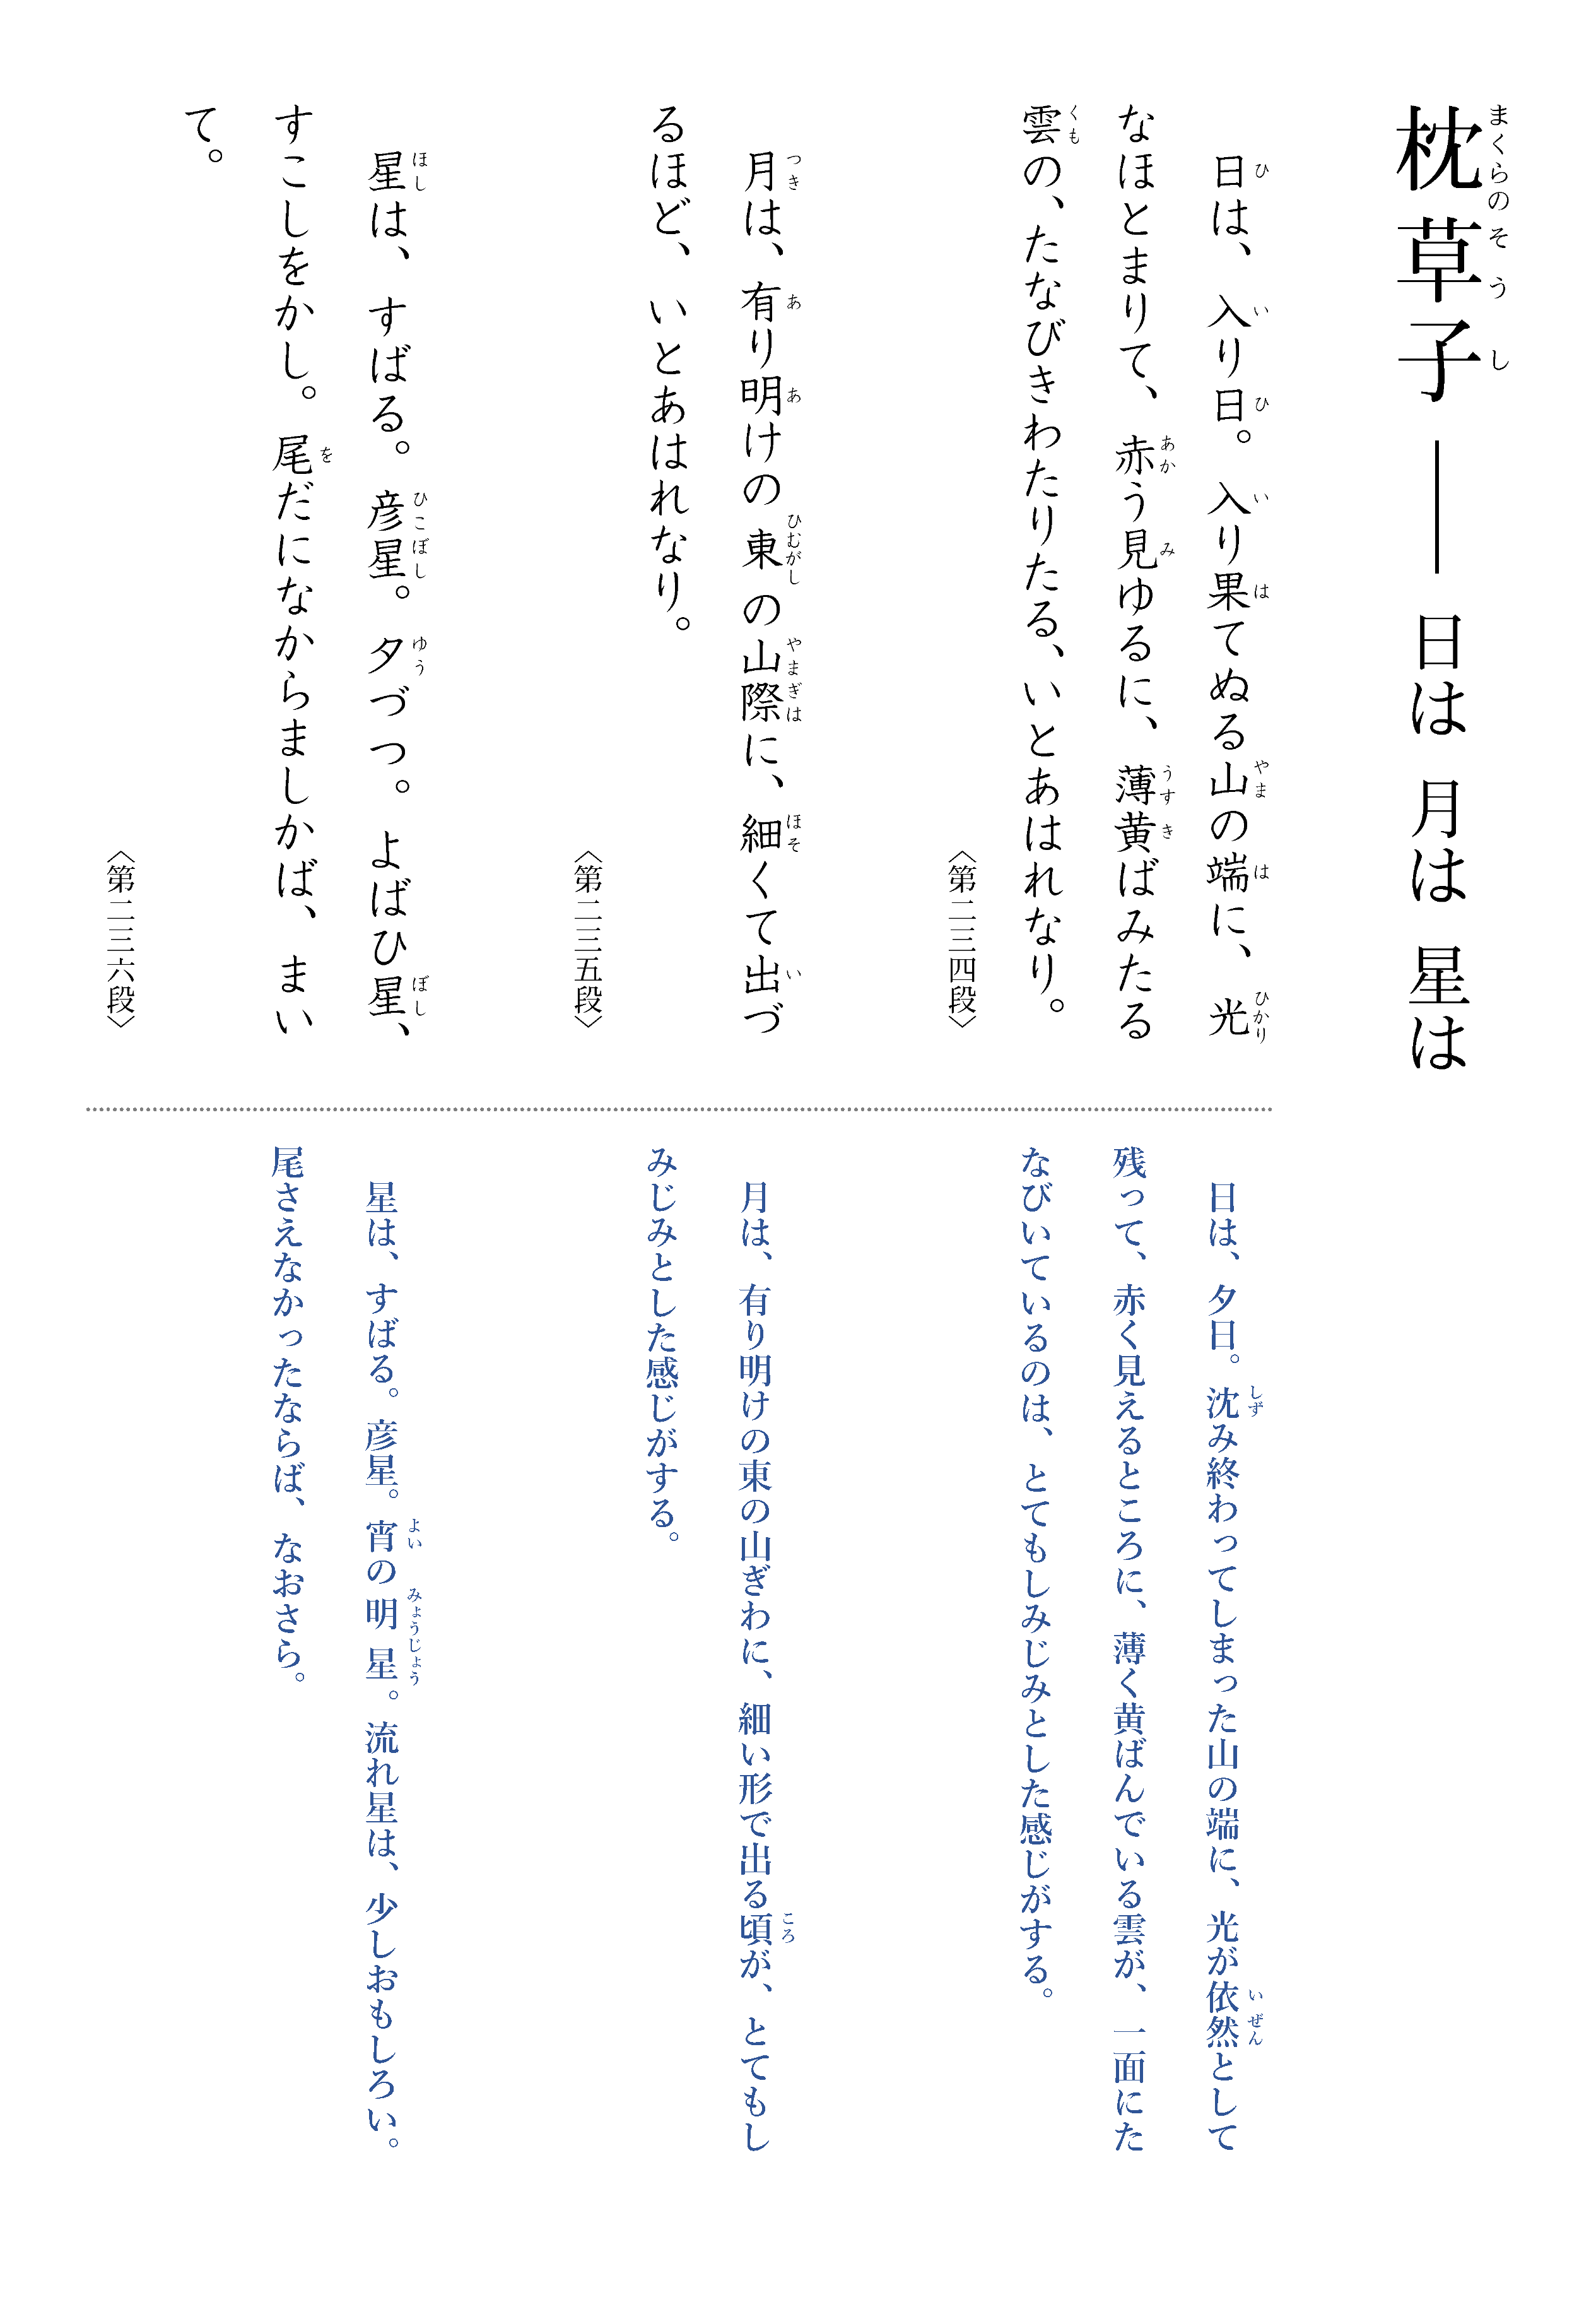 枕草子――日は 月は 星は
日は、入り日。入り果てぬる山の端に、光
なほとまりて、赤う見ゆるに、薄黄ばみたる
雲の、たなびきわたりたる、いとあはれなり。
〈第二三四段〉
月は、有り明けの東の山際に、細くて出づ
るほど、いとあはれなり。
〈第二三五段〉
星は、すばる。彦星。夕づつ。よばひ星、
すこしをかし。尾だになからましかば、まい
て。
〈第二三六段〉
日は、夕日。沈み終わってしまった山の端に、光が依然として
残って、赤く見えるところに、薄く黄ばんでいる雲が、一面にた
なびいているのは、とてもしみじみとした感じがする。
月は、有り明けの東の山ぎわに、細い形で出る頃が、とてもし
みじみとした感じがする。
星は、すばる。彦星。宵の明星。流れ星は、少しおもしろい。
尾さえなかったならば、なおさら。